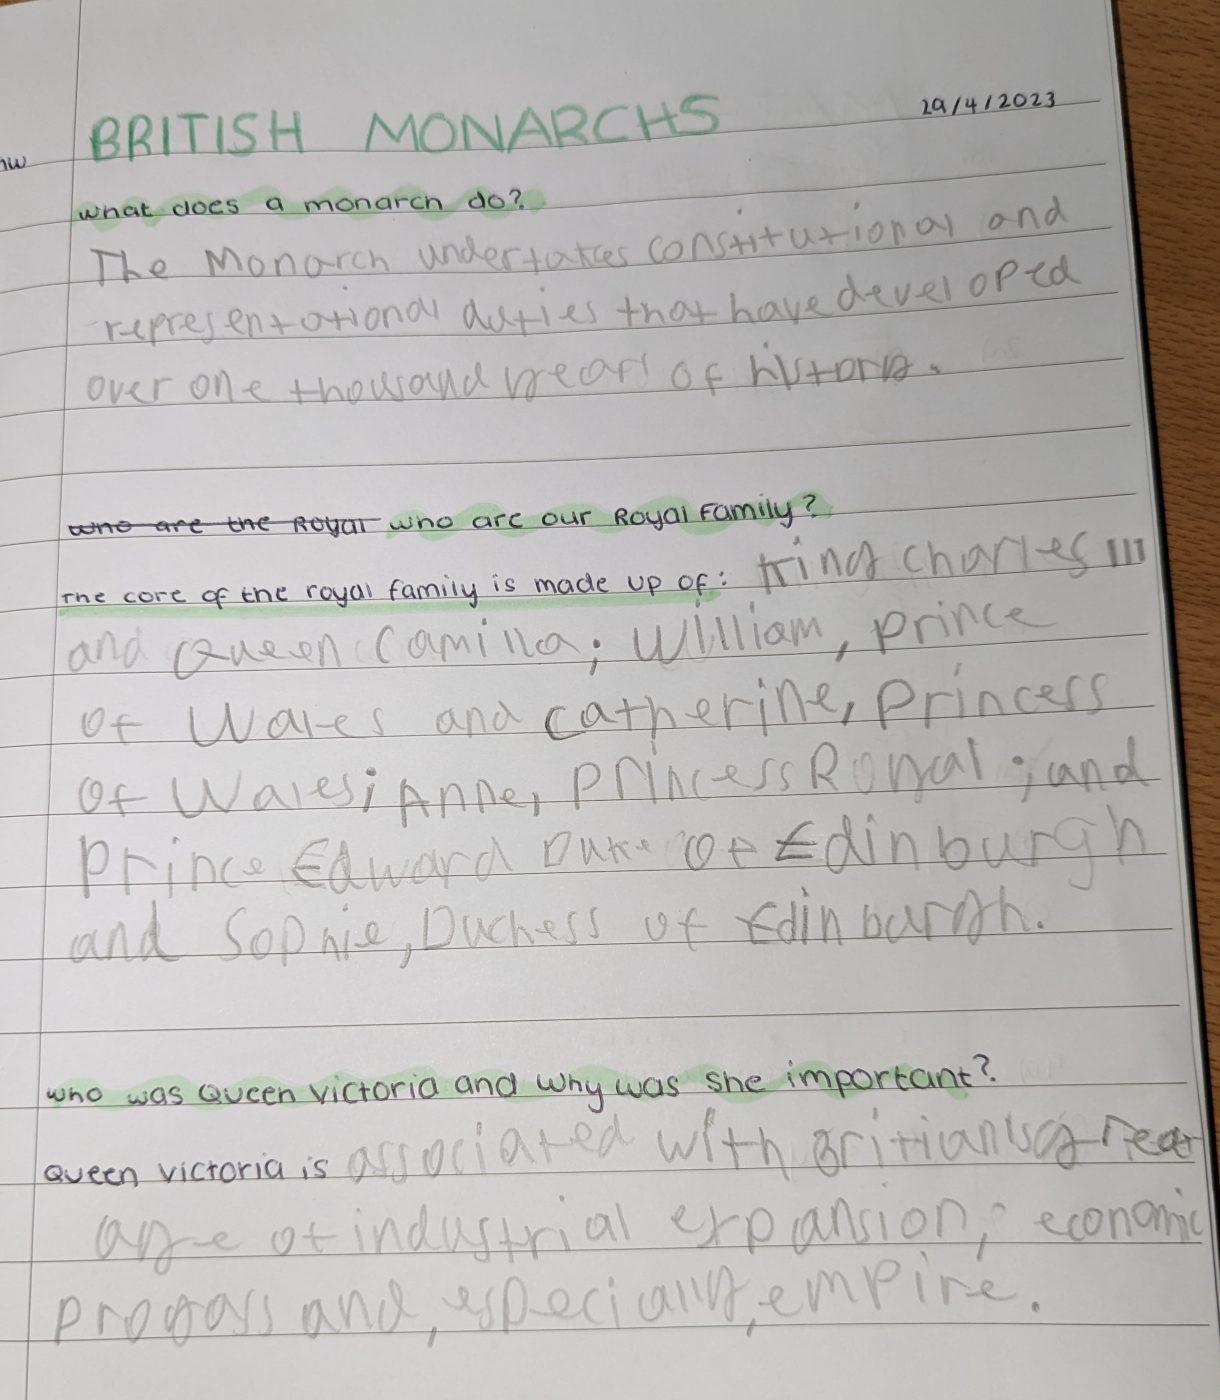 BRITISH MONARCHS
29/4/2023
what does a monarch do?
The Monarch undertakes constitutional and
representational duties that have developed
over one thousand years of history.
who are the Royal who are our Royal Family?
The core of the royal family is made up of: King Charles III
and Queen Camilla; William, Prince
of Wales and Catherine, Princess
of Wales; Anne, Princess Royal; and
Prince Edward Duke of Edinburgh
and Sophie, Duchess of Edinburgh.
who was Queen Victoria and why was she important?
Queen Victoria is associated with
age of industrial expansion, economic
progass and, especially, empire.